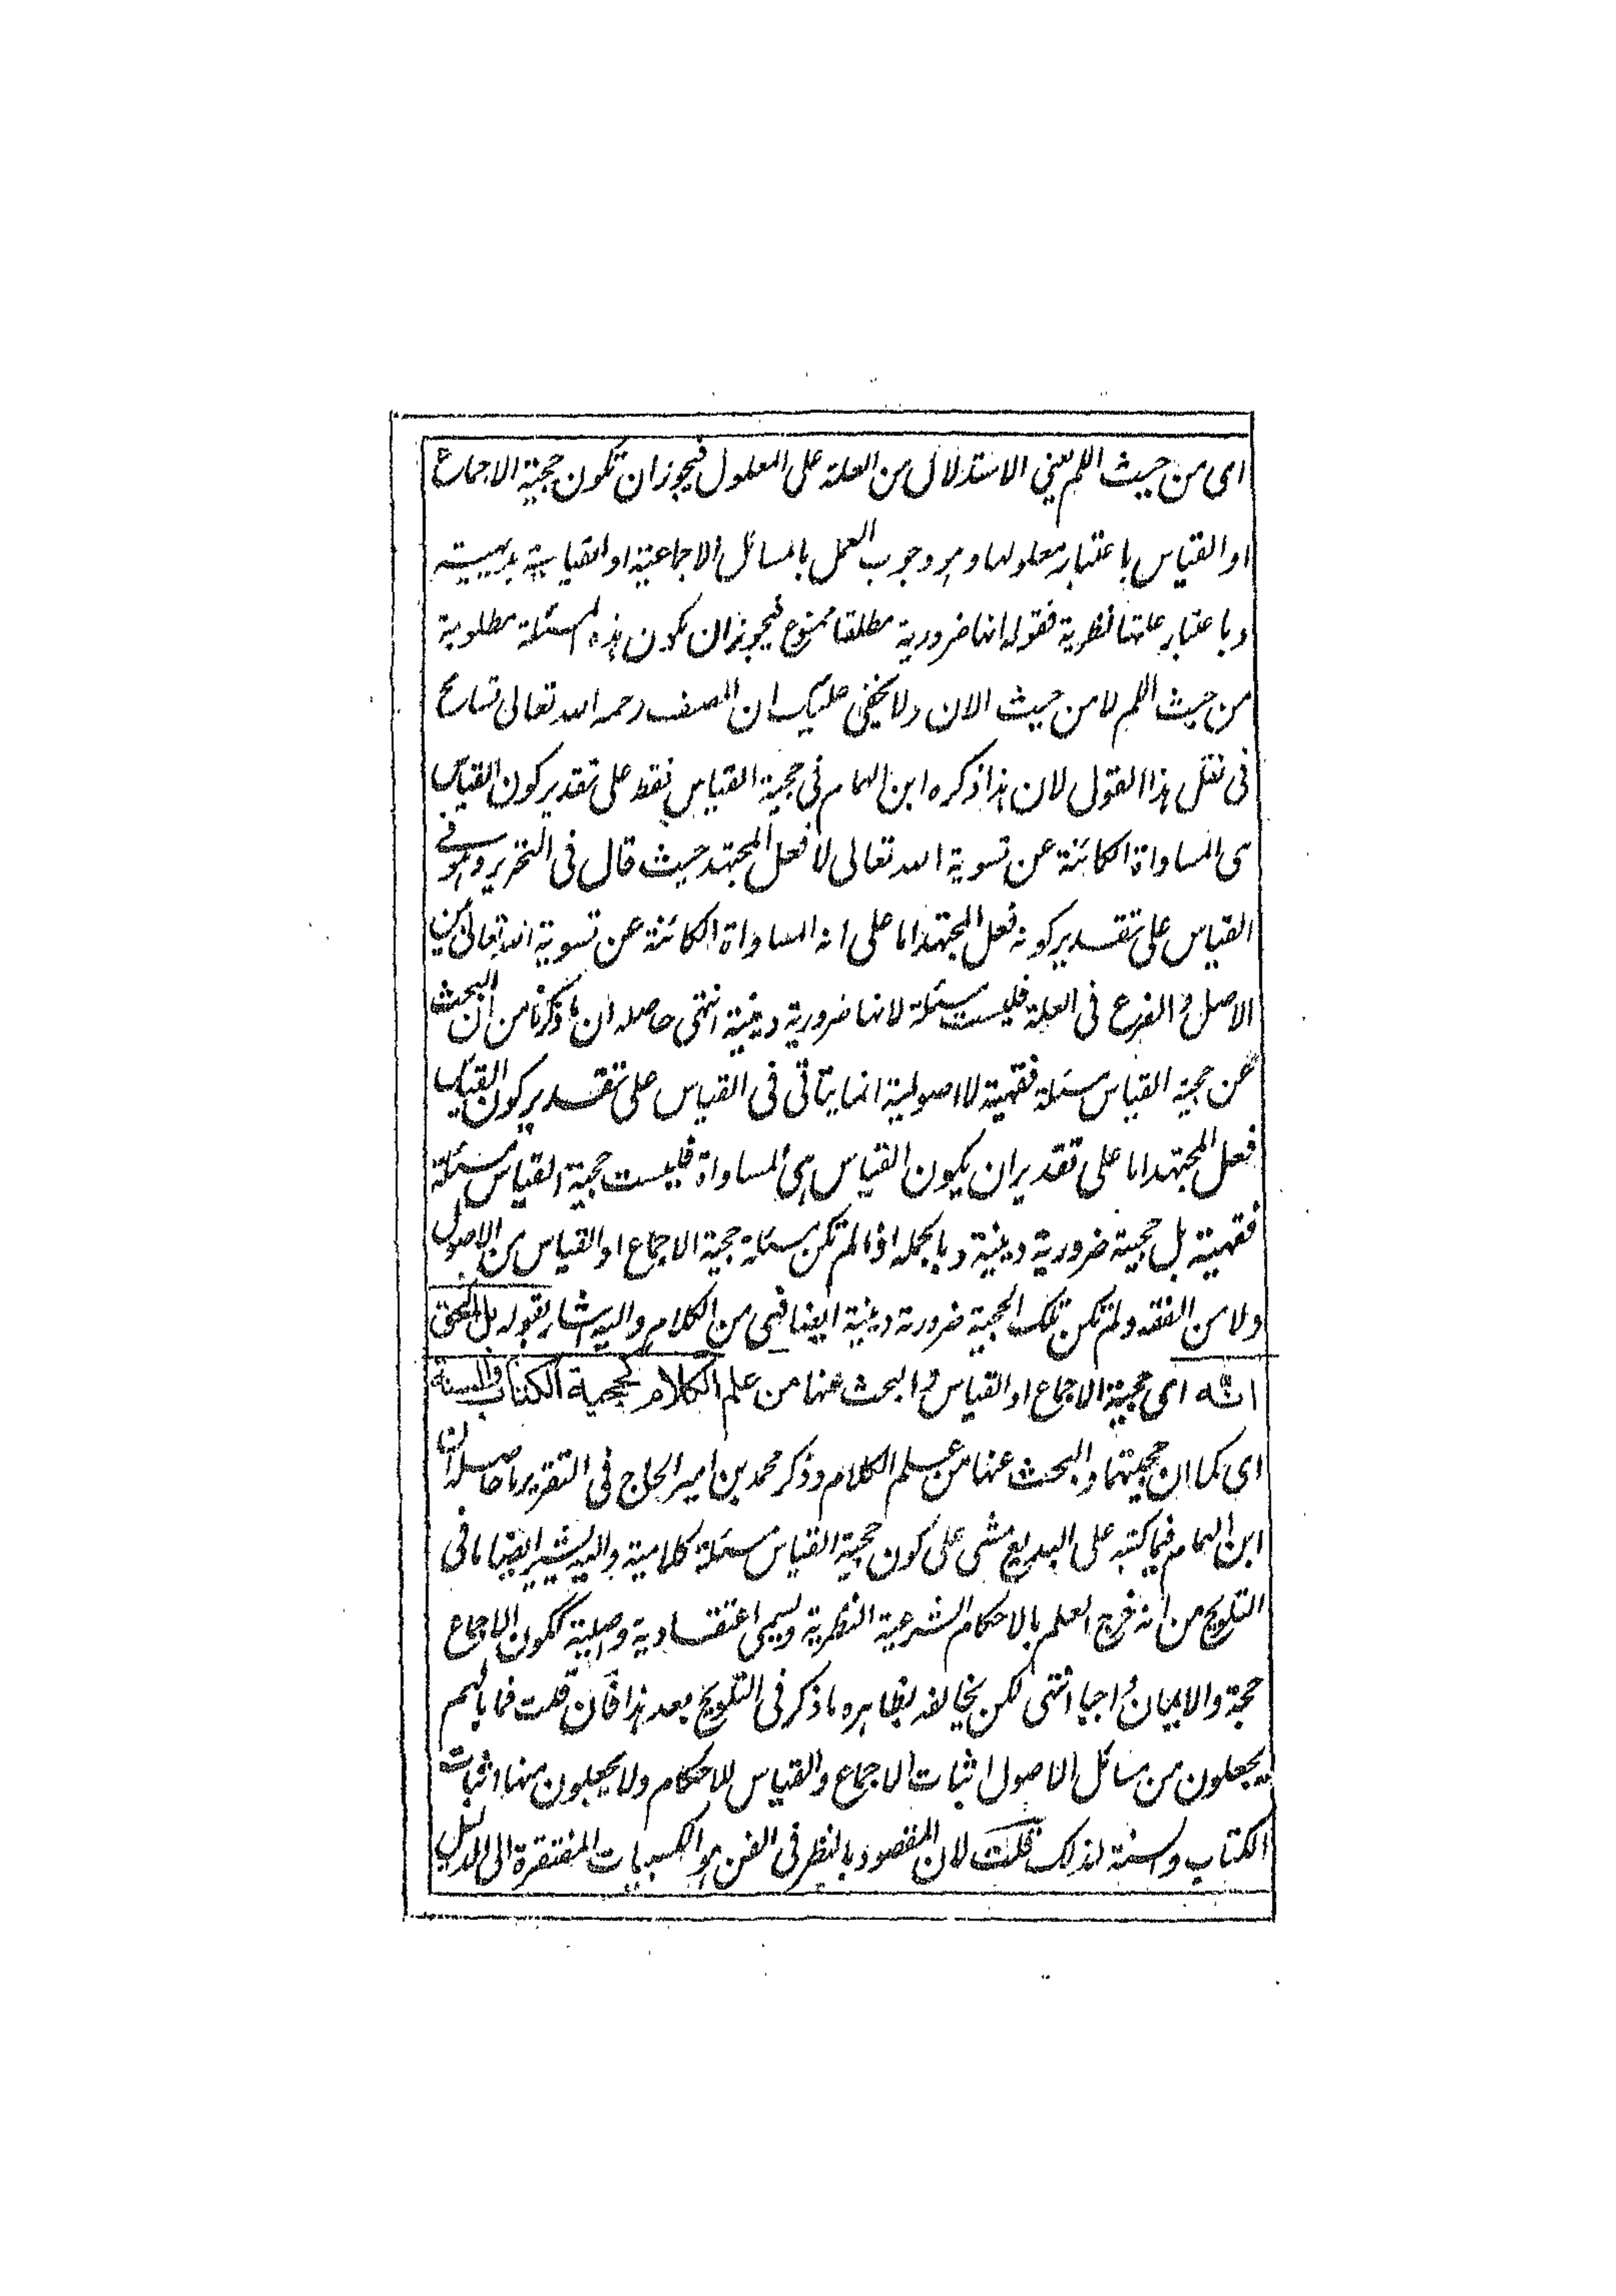 اى من حيث اللم يعنى الاستدلال من العلة على المعلول فيجوز ان تكون حجية الاجماع
او القياس باعتبار معلولها وهو وجوب العمل بالمسائل الاجماعية او القياسية بديهيية
وباعتبار علتها نظرية فقوله انها ضرورية مطلقا ممنوع فيجوز ان يكون هذه المسئلة مطلوبة
من حيث اللم لا من حيث الان ولا يخفى عليك ان المصنف رحمه الله تعالى تسامح
فى نقل هذا القول لان هذا ذكره ابن الهمام فى حجية القياس فقط على تقدير كون القياس
هى المساواة الكائنة عن تسوية الله تعالى لا فعل المجتهد حيث قال فى التحرير وهو فى
القياس على تقدير كونه فعل المجتهد اما على انه المساواة الكائنة عن تسوية الله تعالى بين
الاصل والفرع فى العلة فليست مسئلة لانها ضرورية دينية انتهى حاصله ان ما ذكرنا من ان البحث
عن حجية القياس مسئلة فقهية لا اصولية انما يتاتى فى القياس على تقدير كون القياس
فعل المجتهد اما على تقدير ان يكون القياس هى المساواة فليست حجية القياس مسئلة
فقهية بل حجيته ضرورية دينية وبالجملة اذا لم تكن مسئلة حجية الاجماع او القياس من الاصول
ولا من الفقه ولم تكن تلك الحجية ضرورة دينية ايضا فهى من الكلام واليه اشار بقوله بل الحق
انه اى حجية الاجماع او القياس والبحث عنها من علم الكلام كحجية الكتاب والسنة
اى كما ان حجيتهما والبحث عنها من علم الكلام وذكر محمد بن امير الحاج فى التقرير ما حاصله ان
ابن الهمام فيما كتبه على البديع مشى على كون حجية القياس مسئلة كلامية واليه يشير ايضا ما فى
التلويح من انه خرج العلم بالاحكام الشرعية النظرية ويسمى اعتقادية واصلية ككون الاجماع
حجة والايمان واجبا انتهى لكن يخالفه بظاهره ما ذكر فى التلويح بعد هذا فان قلت فما بالهم
يجعلون من مسائل الاصول اثبات الاجماع والقياس للاحكام ولا يجعلون منها اثبات
الكتاب والسنة لذلك قلت لان المقصود بالنظر فى الفن هو الكسبيات المفتقرة الى الدليل